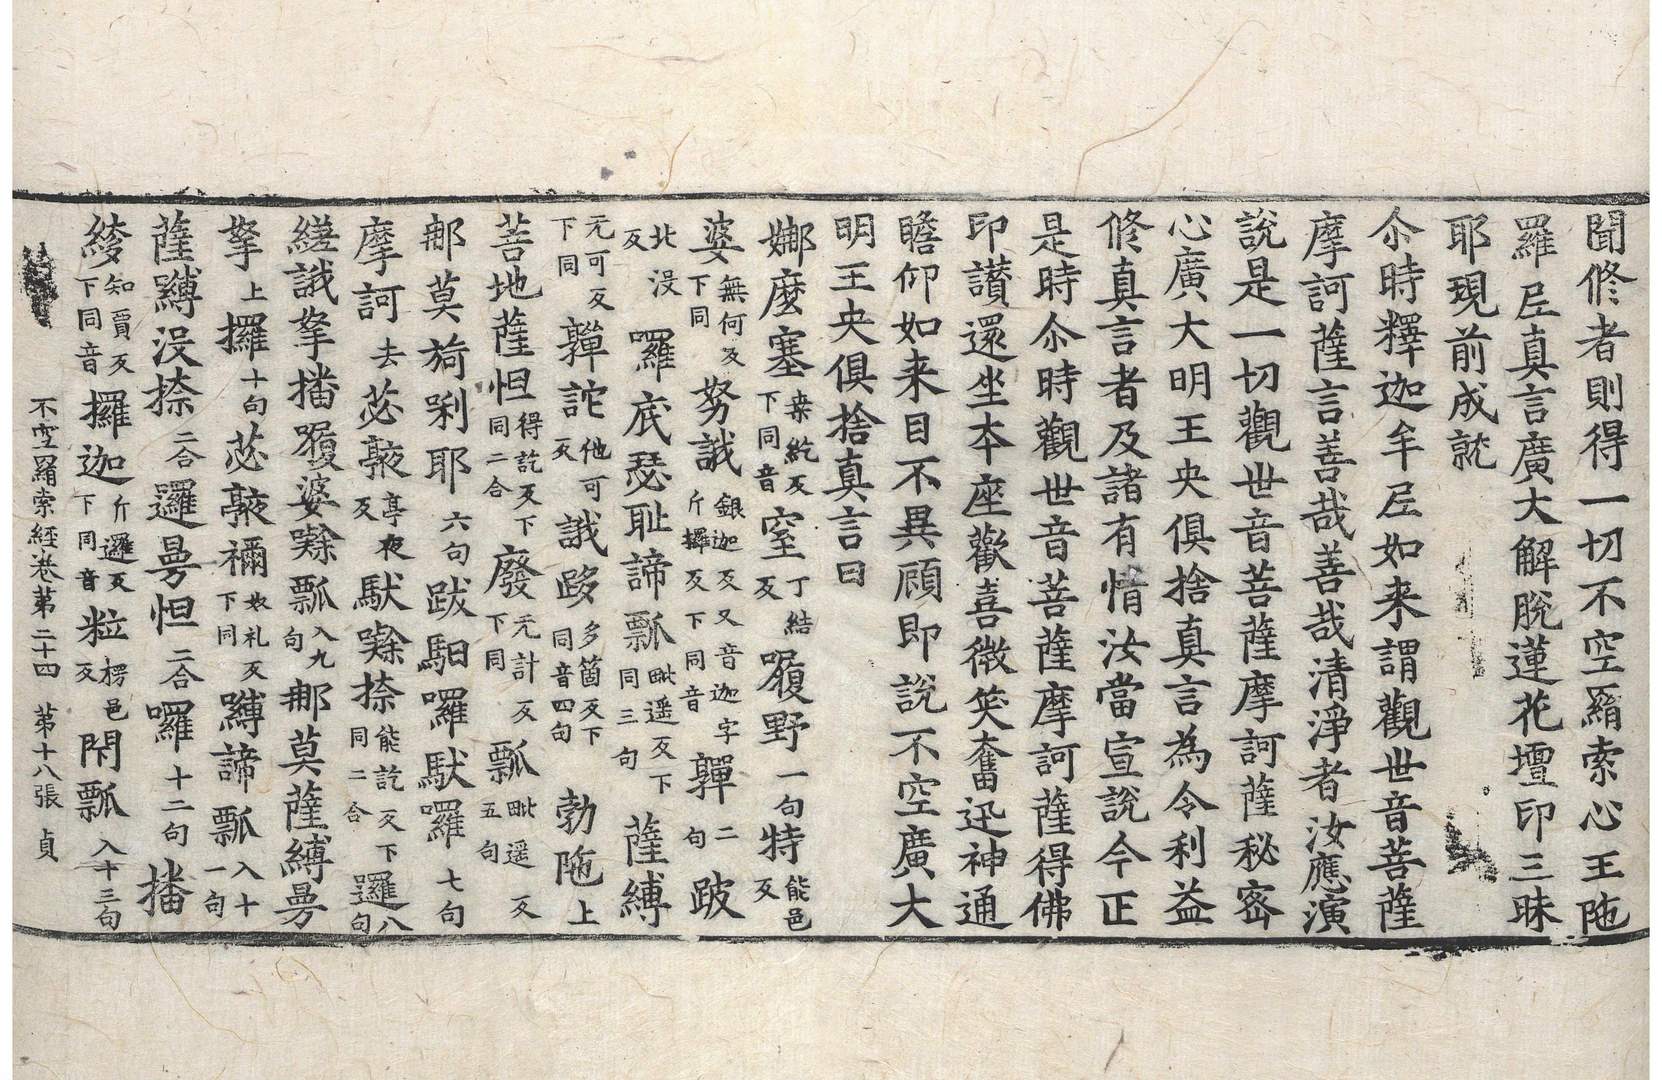 聞修者則得一切不空羂索心王陁
羅𡰱真言廣大解脫蓮花壇印三昧
耶現前成就
尒時釋迦牟𡰱如来謂觀世音菩薩
摩訶薩言善哉善哉清淨者汝應演
說是一切觀世音菩薩摩訶薩秘密
心廣大明王央俱捨真言為令利益
修真言者及諸有情汝當宣說今正
是時尒時觀世音菩薩摩訶薩得佛
印讃還坐本座歡喜微笑奮迅神通
瞻仰如来目不異顧即說不空廣大
明王央俱捨真言曰
娜麼塞桒紇反下同音窒丁結反㘑野一句特能邑反
婆無何反下同努誐銀迦反又音迦字斤攞反下同音嚲二句跛
北没反囉底瑟耻諦瓢毗遥反下同三句薩縛
元可反下同嚲詑他可反誐跢多箇反下同音四句勃陁上
菩地薩怛得訖反下同二合廢无計反下同瓢毗遥反五句
䣯莫旖唎耶六句跋馹囉䭾囉七句
摩訶去苾㰆亭夜反䭾㘓捺能訖反下同二合邏八句
縒誐拏播㘑婆㘓瓢入九句䣯莫薩縛曼
拏上攞十句苾㰆禰奴礼反下同縛諦瓢入十一句
薩縛没捺二合邏曼怛二合囉十二句播
䋾知賈反下同音攞迦斤邏反下同音粒楞邑反閇瓢入十三句
不空羂索經卷第二十四　第十八張　貞